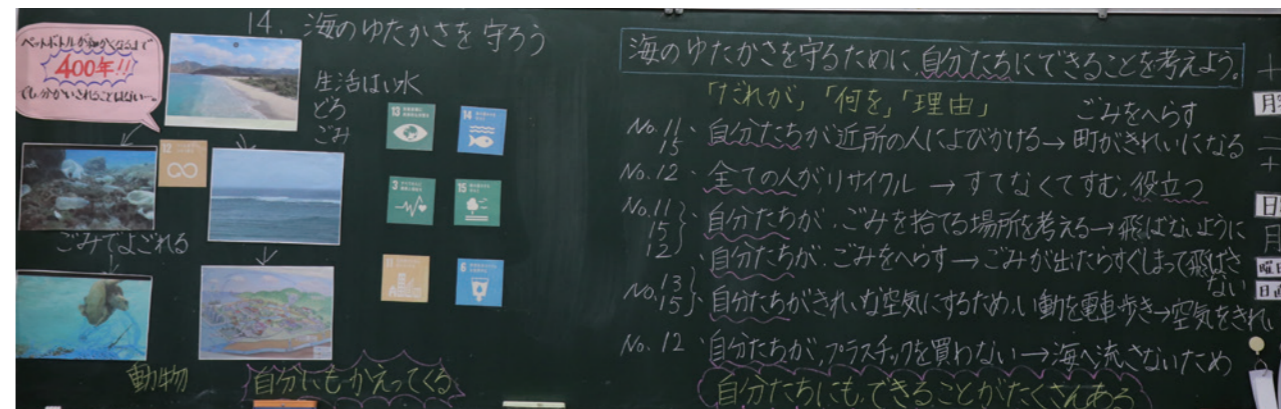 14. 海のゆたかさを守ろう
ペットボトルが細かくなるまで
400年!!
でも分かいされることはないー。
生活はい水
どろ
ごみ
13
14
12
3
15
11
6
ごみでよごれる
動物
自分にもかえってくる
海のゆたかさを守るために、自分たちにできることを考えよう。
「だれが」「何を」「理由」
ごみをへらす
No.11、自分たちが近所の人によびかける→町がきれいになる
15
No.12、全ての人がリサイクル→すてなくてすむ、役立つ
No.11、自分たちが、ごみを捨てる場所を考える→飛ばないように
15
12、自分たちが、ごみをへらす→ごみが出たらすぐしまって飛ばさ
ない
No.13
15、自分たちがきれいな空気にするため、い動を電車歩き→空気をきれい
No.12、自分たちが、プラスチックを買わない→海へ流さないため
自分たちにも、できることがたくさんある
月
日
月
曜日
日直